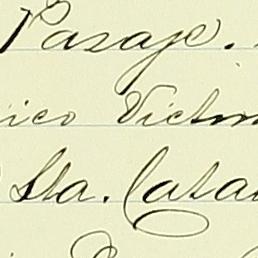 Pasaje.
ico Victor
Sta. Catal